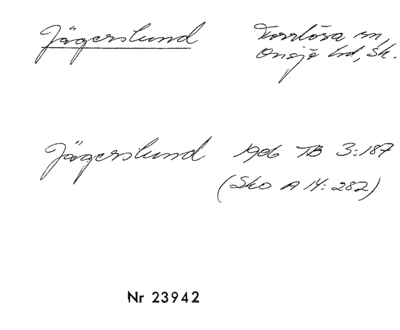 Jägerslund Torrlösa sn,
Onsjö hd, Sk.
Jägerslund 1906 TB 3:187
(Sko A 14: 282)
Nr 23942